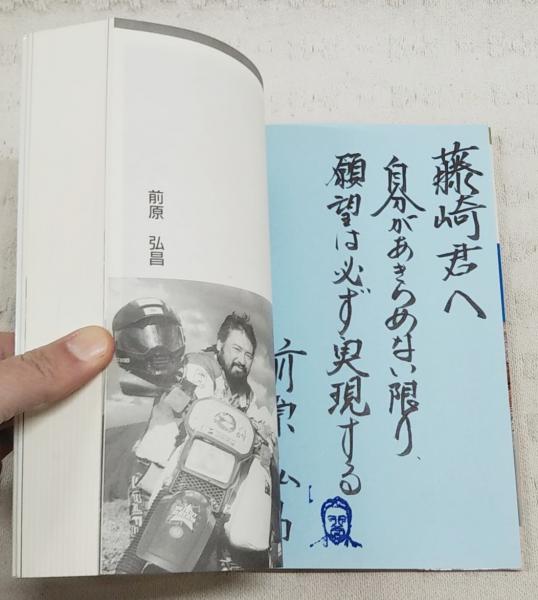 藤崎君へ
自分があきらめない限り、
願望は必ず実現する
前原弘昌
前原 弘昌